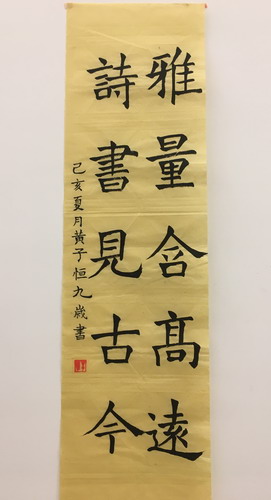 雅量含高遠
詩書見古今
己亥夏月黃子恒九歲書